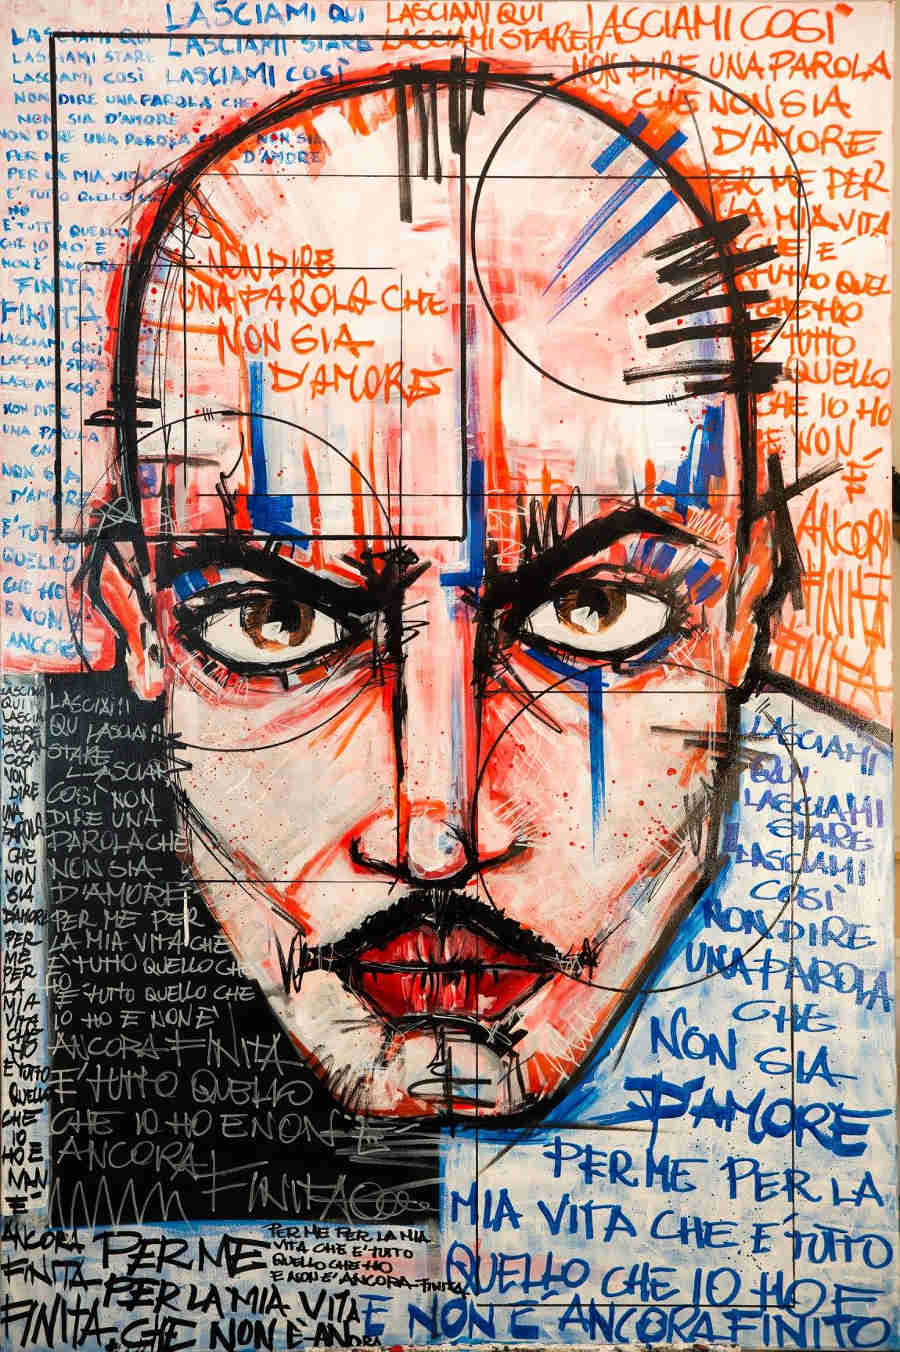 LASCIAMI QUI
LASCIAMI STARE
LASCIAMI COSÌ
NON DIRE UNA PAROLA CHE
NON SIA D'AMORE
NON DIRE UNA PAROLA CHE NON SIA
D'AMORE
PER ME
PER LA MIA VITA CHE
E' TUTTO QUELLO CHE
HO
E TUTTO QUELLO
CHE IO HO E
NON E' ANCORA
FINITA
FINITA
LASCIAMI QUI
LASCIAMI STARE
LASCIAMI COSÌ
NON DIRE
UNA PAROLA
CHE
NON SIA
D'AMORE
E' TUTTO
QUELLO
CHE HO
E NON
ANCORE
LASCIAMI QUI
LASCIAMI STARE
LASCIAMI COSÌ
LASCIAMI QUI
LASCIAMI STARE
LASCIAMI COSI'
NON DIRE UNA PAROLA
CHE NON SIA
D'AMORE
PER ME PER
LA MIA VITA
CHE E'
TUTTO QUEL
CHE HO
E TUTTO
QUELLO
CHE IO HO
E NON
È
ANCORA
FINITA
FINITA
NON DIRE
UNA PAROLA CHE
NON SIA
D'AMORE
LASCIAMI
QUI
LASCIAMI
STARE
LASCIAMI
COSÌ
NON
DIRE
UNA
PAROLA
CHE
NON
SIA
D'AMORE
PER
ME
PER
LA
MIA
VITA
CHE
HO
E TUTTO
QUELLO
CHE
IO
HO E
NON
E'
ANCORA
FINITA
FINITA
LASCIAMI
QU LASCIAMI
STARE
LASCIAMI
COSÌ NON
DIRE UNA
PAROLA CHE
NON SIA
D'AMORE
PER ME PER
LA MIA VITA CHE
E' TUTTO QUELLO CHE
HO
E' TUTTO QUELLO CHE
IO HO E NON E'
ANCORA FINITA
E' TUTTO QUELLO
CHE IO HO E NON E'
ANCORA
FINITA
LASCIAMI
QUI
LASCIAMI
STARE
LASCIAMI
COSÌ
NON DIRE
UNA PAROLA
CHE
NON SIA
D'AMORE
PER ME PER LA
MIA VITA CHE E' TUTTO
QUELLO CHE IO HO E
E NON E' ANCORA FINITO
PER ME
PER LA MIA VITA
CHE NON È ANCORA
PER ME PER LA MIA
VITA CHE E' TUTTO
QUELLO CHE HO
E NON E' ANCORA FINITA